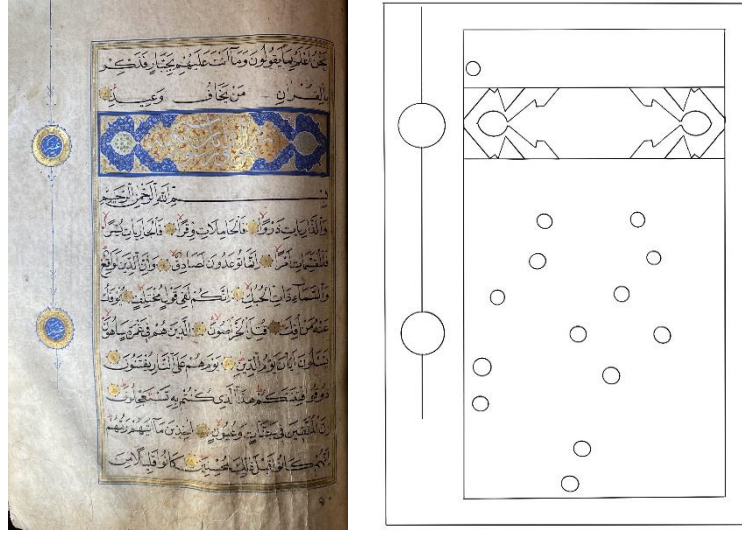 نَحْنُ أَعْلَمُ بِمَا يَقُولُونَ وَمَا أَنْتَ عَلَيْهِمْ بِجَبَّارٍ فَذَكِّرْ
بِالْقُرْآنِ مَنْ يَخَافُ وَعِيدِ
بِسْمِ اللهِ الرَّحْمٰنِ الرَّحِيمِ
وَالذَّارِيَاتِ ذَرْوًا فَالْحَامِلَاتِ وِقْرًا فَالْجَارِيَاتِ يُسْرًا
فَالْمُقَسِّمَاتِ أَمْرًا إِنَّمَا تُوعَدُونَ لَصَادِقٌ وَإِنَّ الدِّينَ لَوَاقِعٌ
وَالسَّمَاءِ ذَاتِ الْحُبُكِ إِنَّكُمْ لَفِي قَوْلٍ مُخْتَلِفٍ يُؤْفَكُ
عَنْهُ مَنْ أُفِكَ قُتِلَ الْخَرَّاصُونَ الَّذِينَ هُمْ فِي غَمْرَةٍ سَاهُونَ
يَسْئَلُونَ أَيَّانَ يَوْمُ الدِّينِ يَوْمَ هُمْ عَلَى النَّارِ يُفْتَنُونَ
ذُوقُوا فِتْنَتَكُمْ هٰذَا الَّذِي كُنْتُمْ بِهِ تَسْتَعْجِلُونَ
إِنَّ الْمُتَّقِينَ فِي جَنَّاتٍ وَعُيُونٍ آخِذِينَ مَا آتَيهُمْ رَبُّهُمْ
إِنَّهُمْ كَانُوا قَبْلَ ذٰلِكَ مُحْسِنِينَ كَانُوا قَلِيلًا مِنَ